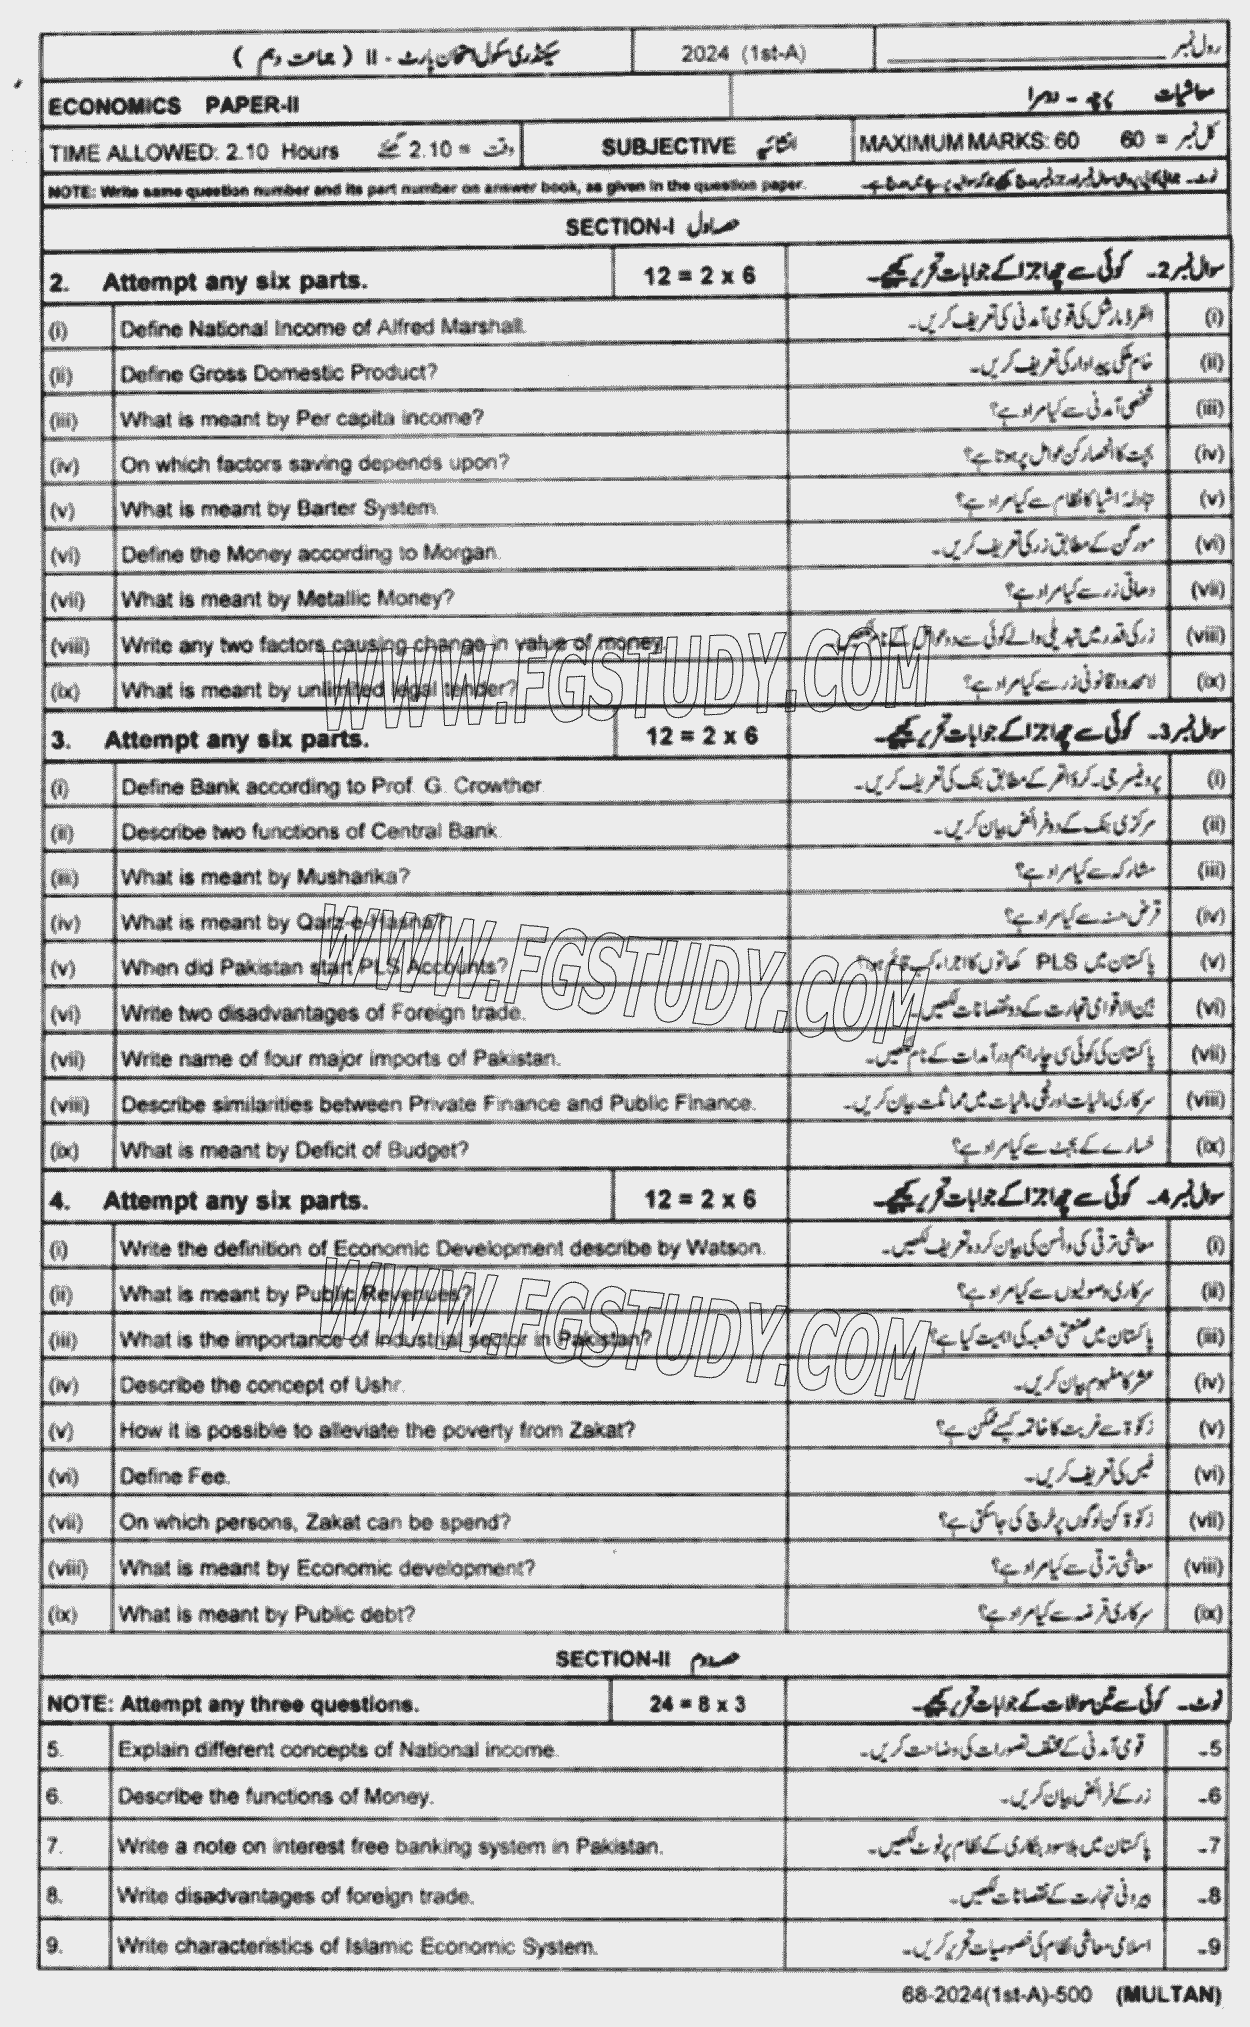 سیکنڈری سکول امتحان پارٹ - II ( جماعت دہم ) 2024 (1st-A) رول نمبر
ECONOMICS PAPER-II معاشیات پرچہ - دوسرا
TIME ALLOWED: 2.10 Hours وقت = 2.10 گھنٹے SUBJECTIVE انشائیہ MAXIMUM MARKS: 60 کل نمبر = 60
NOTE: Write same question number and its part number on answer book, as given in the question paper.
SECTION-I حصہ اول
2. Attempt any six parts. 12 = 2 x 6 سوال نمبر 2۔ کوئی سے چھ اجزا کے جوابات تحریر کیجیے۔
(i) Define National Income of Alfred Marshall. الفرڈ مارشل کی قومی آمدنی کی تعریف کریں۔ (i)
(ii) Define Gross Domestic Product? خام ملکی پیداوار کی تعریف کریں۔ (ii)
(iii) What is meant by Per capita income? شخصی آمدنی سے کیا مراد ہے؟ (iii)
(iv) On which factors saving depends upon? بچت کا انحصار کن عوامل پر ہوتا ہے؟ (iv)
(v) What is meant by Barter System. تبادلہ اشیا کا نظام سے کیا مراد ہے؟ (v)
(vi) Define the Money according to Morgan. مورگن کے مطابق زر کی تعریف کریں۔ (vi)
(vii) What is meant by Metallic Money? دھاتی زر سے کیا مراد ہے؟ (vii)
(viii) Write any two factors causing change in value of money. زر کی قدر میں تبدیلی والے کوئی سے دو عوامل کے نام لکھیں۔ (viii)
(ix) What is meant by unlimited legal tender? لامحدود قانونی زر سے کیا مراد ہے؟ (ix)
WWW.FGSTUDY.COM
3. Attempt any six parts. 12 = 2 x 6 سوال نمبر 3۔ کوئی سے چھ اجزا کے جوابات تحریر کیجیے۔
(i) Define Bank according to Prof. G. Crowther پروفیسر جی۔ کراؤتھر کے مطابق بنک کی تعریف کریں۔ (i)
(ii) Describe two functions of Central Bank. مرکزی بنک کے دو فرائض بیان کریں۔ (ii)
(iii) What is meant by Musharika? مشارکہ سے کیا مراد ہے؟ (iii)
(iv) What is meant by Qarz-e-Hasna? قرض حسنہ سے کیا مراد ہے؟ (iv)
(v) When did Pakistan start PLS Accounts? پاکستان میں PLS کھاتوں کا اجراء کب قائم ہوا؟ (v)
WWW.FGSTUDY.COM
(vi) Write two disadvantages of Foreign trade. بین الاقوامی تجارت کے دو نقصانات لکھیں۔ (vi)
(vii) Write name of four major imports of Pakistan. پاکستان کی کوئی سی چار اہم درآمدات کے نام لکھیں۔ (vii)
(viii) Describe similarities between Private Finance and Public Finance. سرکاری مالیات اور نجی مالیات میں مماثلت بیان کریں۔ (viii)
(ix) What is meant by Deficit of Budget? خسارے کے بجٹ سے کیا مراد ہے؟ (ix)
4. Attempt any six parts. 12 = 2 x 6 سوال نمبر 4۔ کوئی سے چھ اجزا کے جوابات تحریر کیجیے۔
(i) Write the definition of Economic Development describe by Watson. معاشی ترقی کی واٹسن کی بیان کردہ تعریف لکھیں۔ (i)
(ii) What is meant by Public Revenues? سرکاری وصولیوں سے کیا مراد ہے؟ (ii)
(iii) What is the importance of industrial sector in Pakistan? پاکستان میں صنعتی شعبہ کی اہمیت کیا ہے؟ (iii)
WWW.FGSTUDY.COM
(iv) Describe the concept of Ushr. عشر کا مفہوم بیان کریں۔ (iv)
(v) How it is possible to alleviate the poverty from Zakat? زکوٰۃ سے غربت کا خاتمہ کیسے ممکن ہے؟ (v)
(vi) Define Fee. فیس کی تعریف کریں۔ (vi)
(vii) On which persons, Zakat can be spend? زکوٰۃ کن لوگوں پر خرچ کی جا سکتی ہے؟ (vii)
(viii) What is meant by Economic development? معاشی ترقی سے کیا مراد ہے؟ (viii)
(ix) What is meant by Public debt? سرکاری قرضہ سے کیا مراد ہے؟ (ix)
SECTION-II حصہ دوم
NOTE: Attempt any three questions. 24 = 8 x 3 نوٹ۔ کوئی سے تین سوالات کے جوابات تحریر کیجیے۔
5. Explain different concepts of National income. قومی آمدنی کے مختلف تصورات کی وضاحت کریں۔ 5۔
6. Describe the functions of Money. زر کے فرائض بیان کریں۔ 6۔
7. Write a note on interest free banking system in Pakistan. پاکستان میں بلا سود بنکاری کے نظام پر نوٹ لکھیں۔ 7۔
8. Write disadvantages of foreign trade. بیرونی تجارت کے نقصانات لکھیں۔ 8۔
9. Write characteristics of Islamic Economic System. اسلامی معاشی نظام کی خصوصیات تحریر کریں۔ 9۔
68-2024(1st-A)-500 (MULTAN)